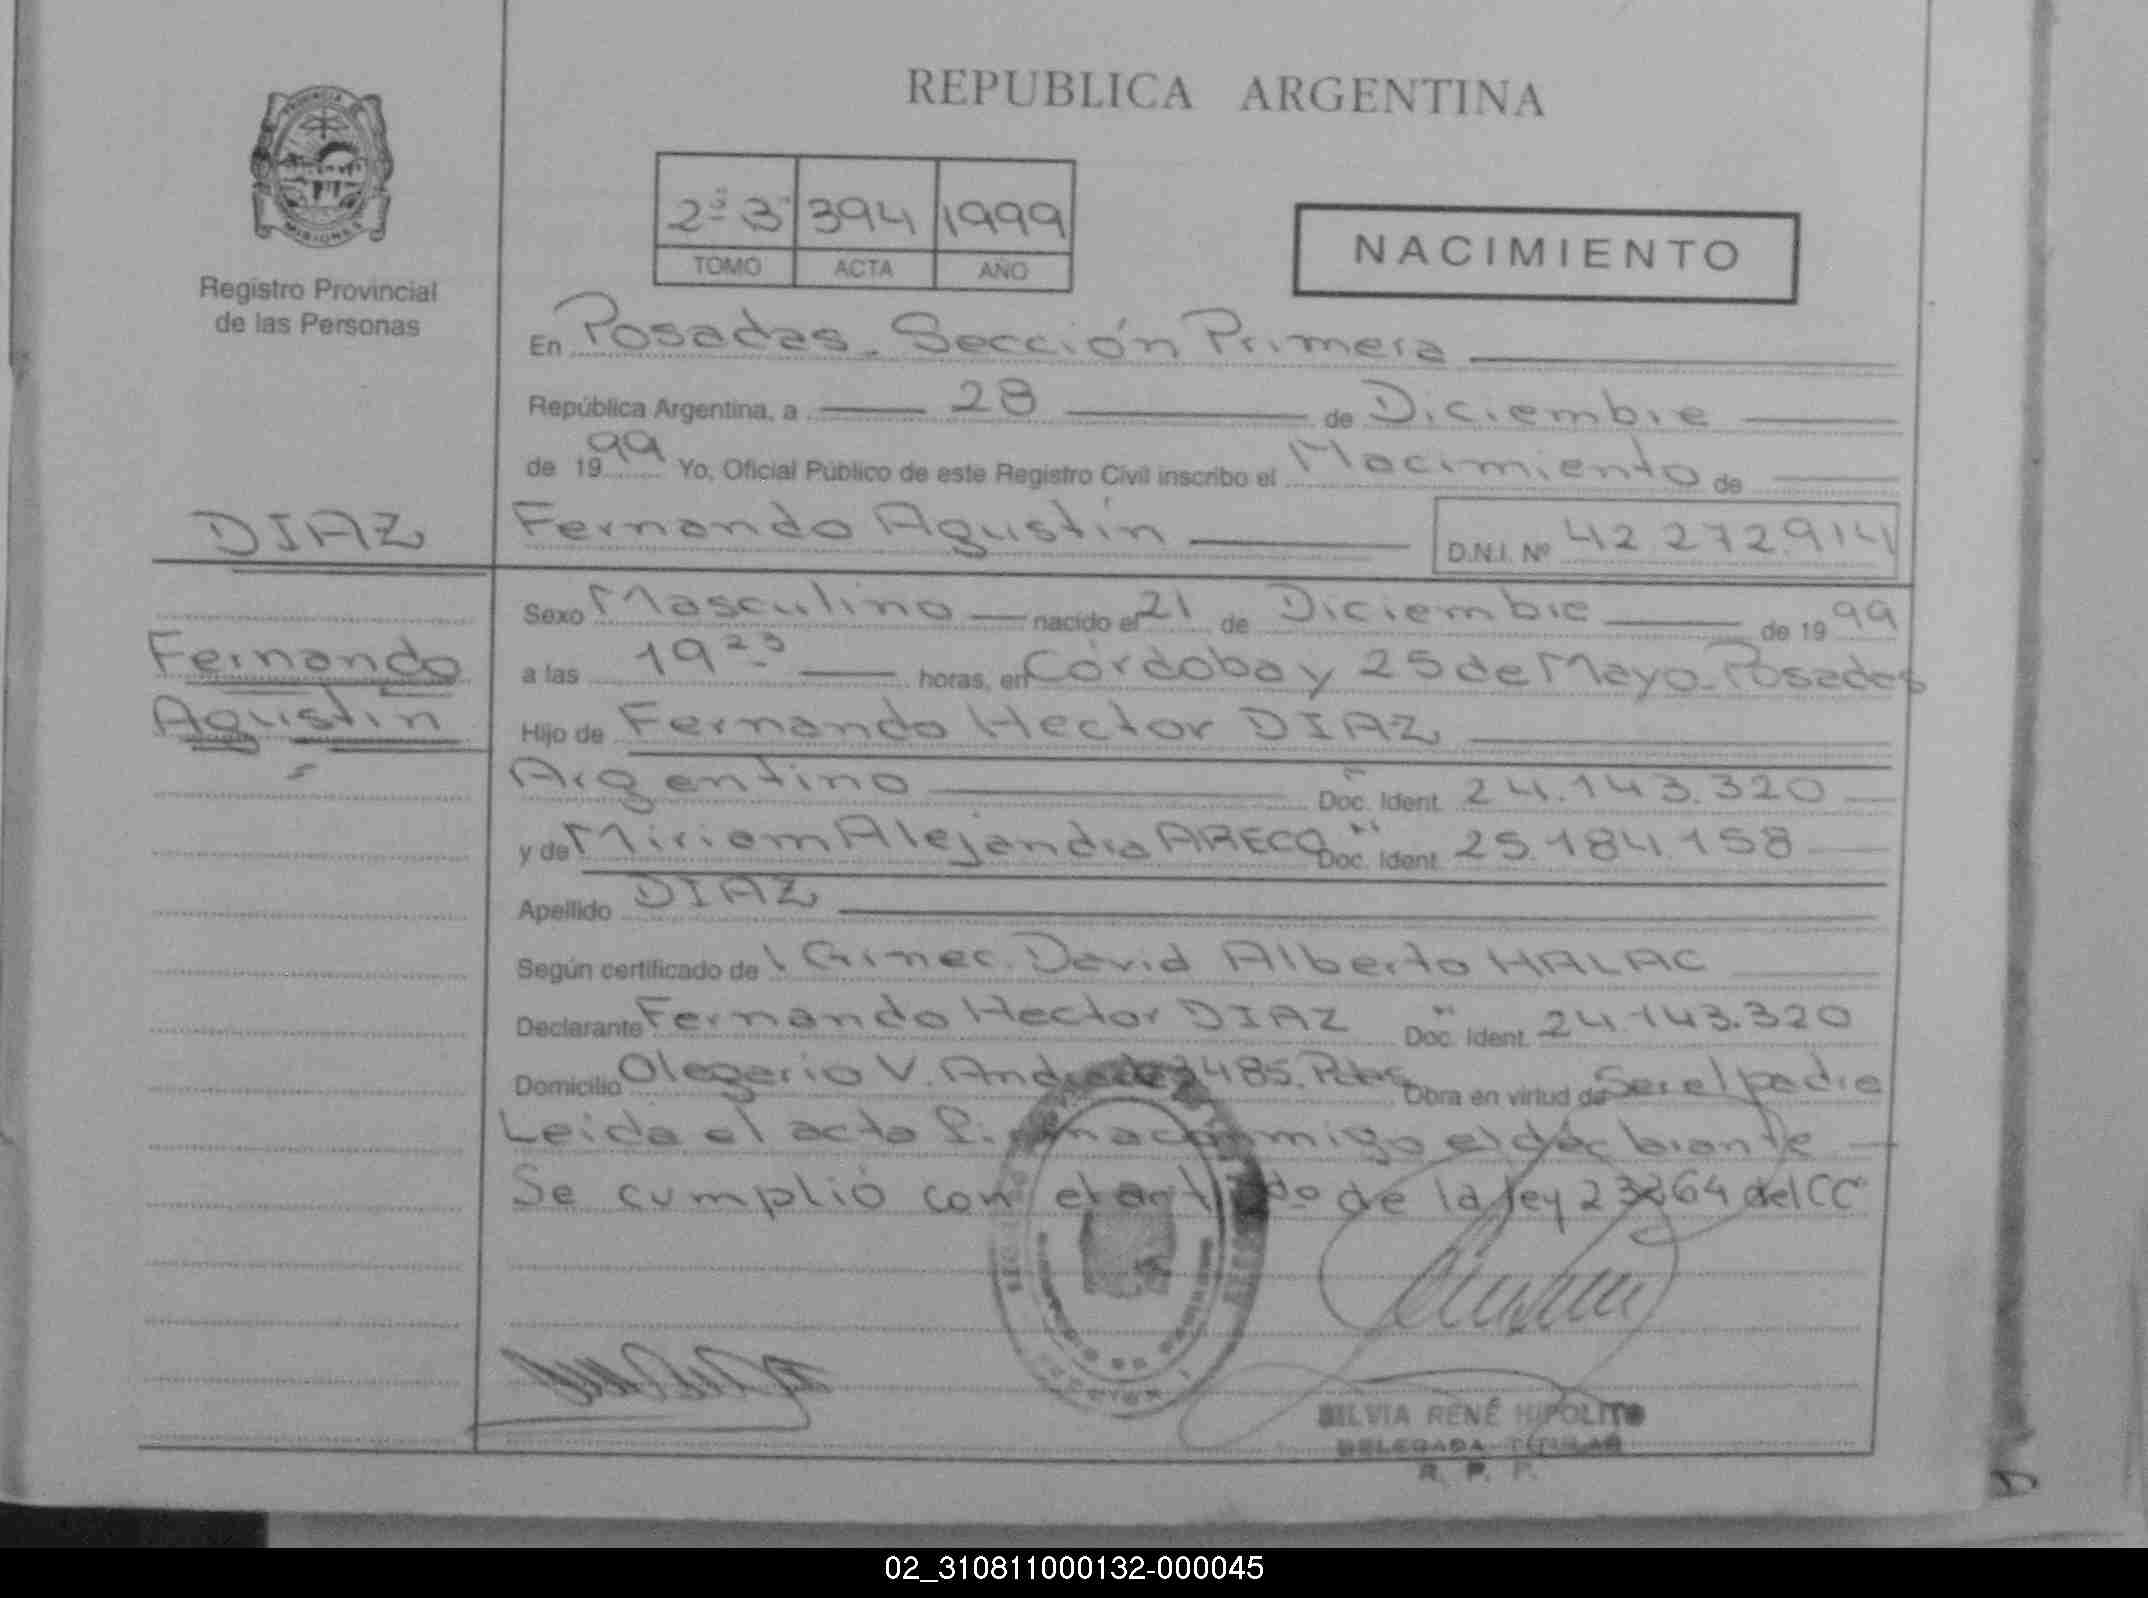 REPUBLICA ARGENTINA
PROVINCIA
MISIONES
Registro Provincial
de las Personas
2º 3º 394 1999
TOMO ACTA AÑO
NACIMIENTO
En Posadas. Sección Primera
República Argentina, a 28 de Diciembre
de 1999 Yo, Oficial Público de este Registro Civil inscribo el Nacimiento de
DIAZ
Fernando Agustín D.N.I. Nº 42.272.914
Fernando
Agustín
Sexo Masculino nacido el 21 de Diciembre de 1999
a las 19 23 horas, en Córdoba y 25 de Mayo. Posadas
Hijo de Fernando Hector DIAZ
Argentino Doc. Ident. 24.143.320
y de Miriam Alejandra ARECO Doc. Ident. 25.184.158
Apellido DIAZ
Según certificado de Ginec. David Alberto HALAC
Declarante Fernando Hector DIAZ Doc. Ident. 24.143.320
Domicilio Olegario V. 485. Obra en virtud de Ser el padre
Leida el acta conmigo el
Se cumplió con el de la ley 23264 del CC
SILVIA RENÉ HIPOLITO
DELEGADA TITULAR
R. P. P.
02_310811000132-000045